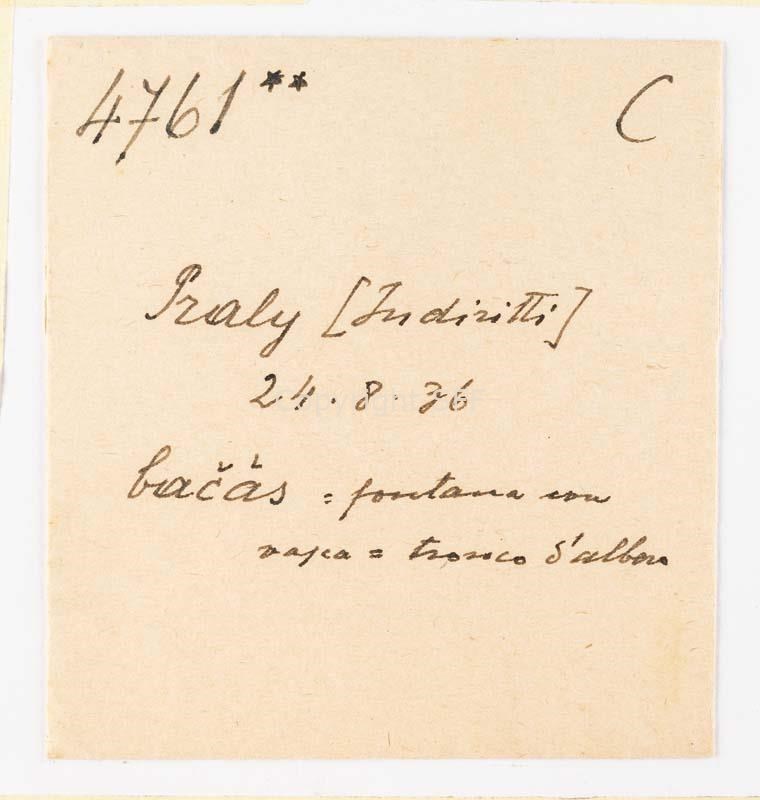 4761** C
Praly [Indiritti]
24.8.36
bačàs = fontana con
vasca = tronco d'albero